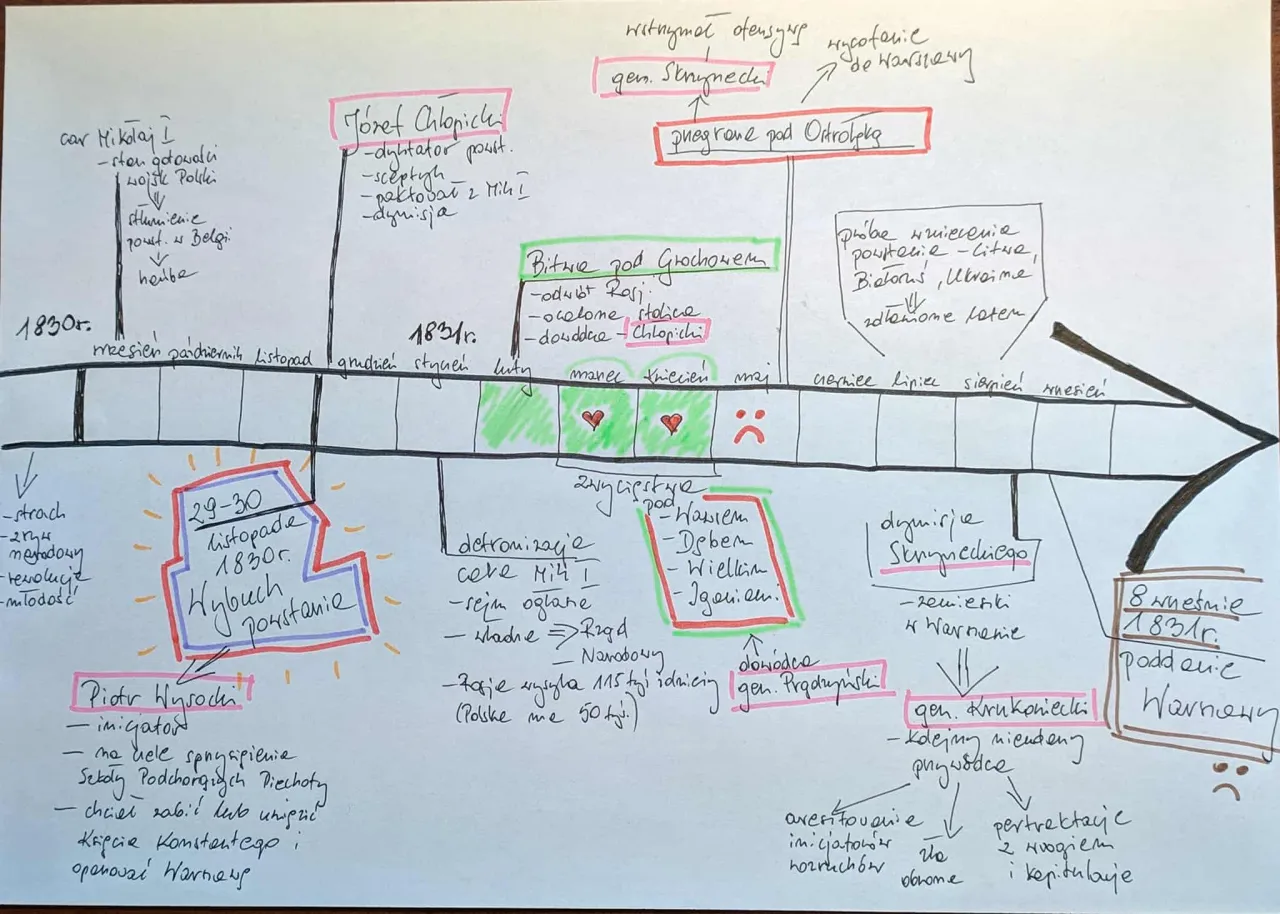 car Mikołaj I
- stan gotowości
wojsk Polski
stłumienie
powst. w Belgi
hańba
Józef Chłopicki
- dyktator powst.
- sceptyk
- paktował z Mik I
- dymisja
wstrzymał ofensywę
gen. Skrzynecki
wycofanie
do Warszawy
przegrana pod Ostrołęką
Bitwa pod Grochowem
- odwrót Rosj.
- ocalona stolica
- dowódca - Chłopicki
próba wzniecenia
powstania - Litwa,
Białoruś, Ukraina
zdławione latem
1830r.
1831r.
wrzesień październik listopad grudzień styczeń luty marzec kwiecień maj czerwiec lipiec sierpień wrzesień
- strach
- zryw
narodowy
- rewolucja
- młodość
29-30
listopada
1830r.
Wybuch
powstania
Piotr Wysocki
- inicjator
- na czele sprzysiężenia
Szkoły Podchorążych Piechoty
- chciał zabić lub uwięzić
Księcia Konstantego i
opanować Warszawę
detronizacja
cara Mik I
- sejm ogłasza
- władza => Rząd
- Narodowy
- Rosja wysyła 115 tyś żołnierzy
(Polska ma 50 tyś.)
zwycięstwa
pod
- Wawrem
- Dębem
- Wielkim
- Iganiami
dowódca
gen. Prądzyński
dymisja
Skrzyneckiego
- zamieszki
w Warszawie
gen. Krukowiecki
- kolejny nieudany
przywódca
aresztowanie
inicjatorów
rozruchów
zła
obrona
pertraktacje
z wrogiem
i kapitulacja
8 września
1831r.
poddanie
Warszawy